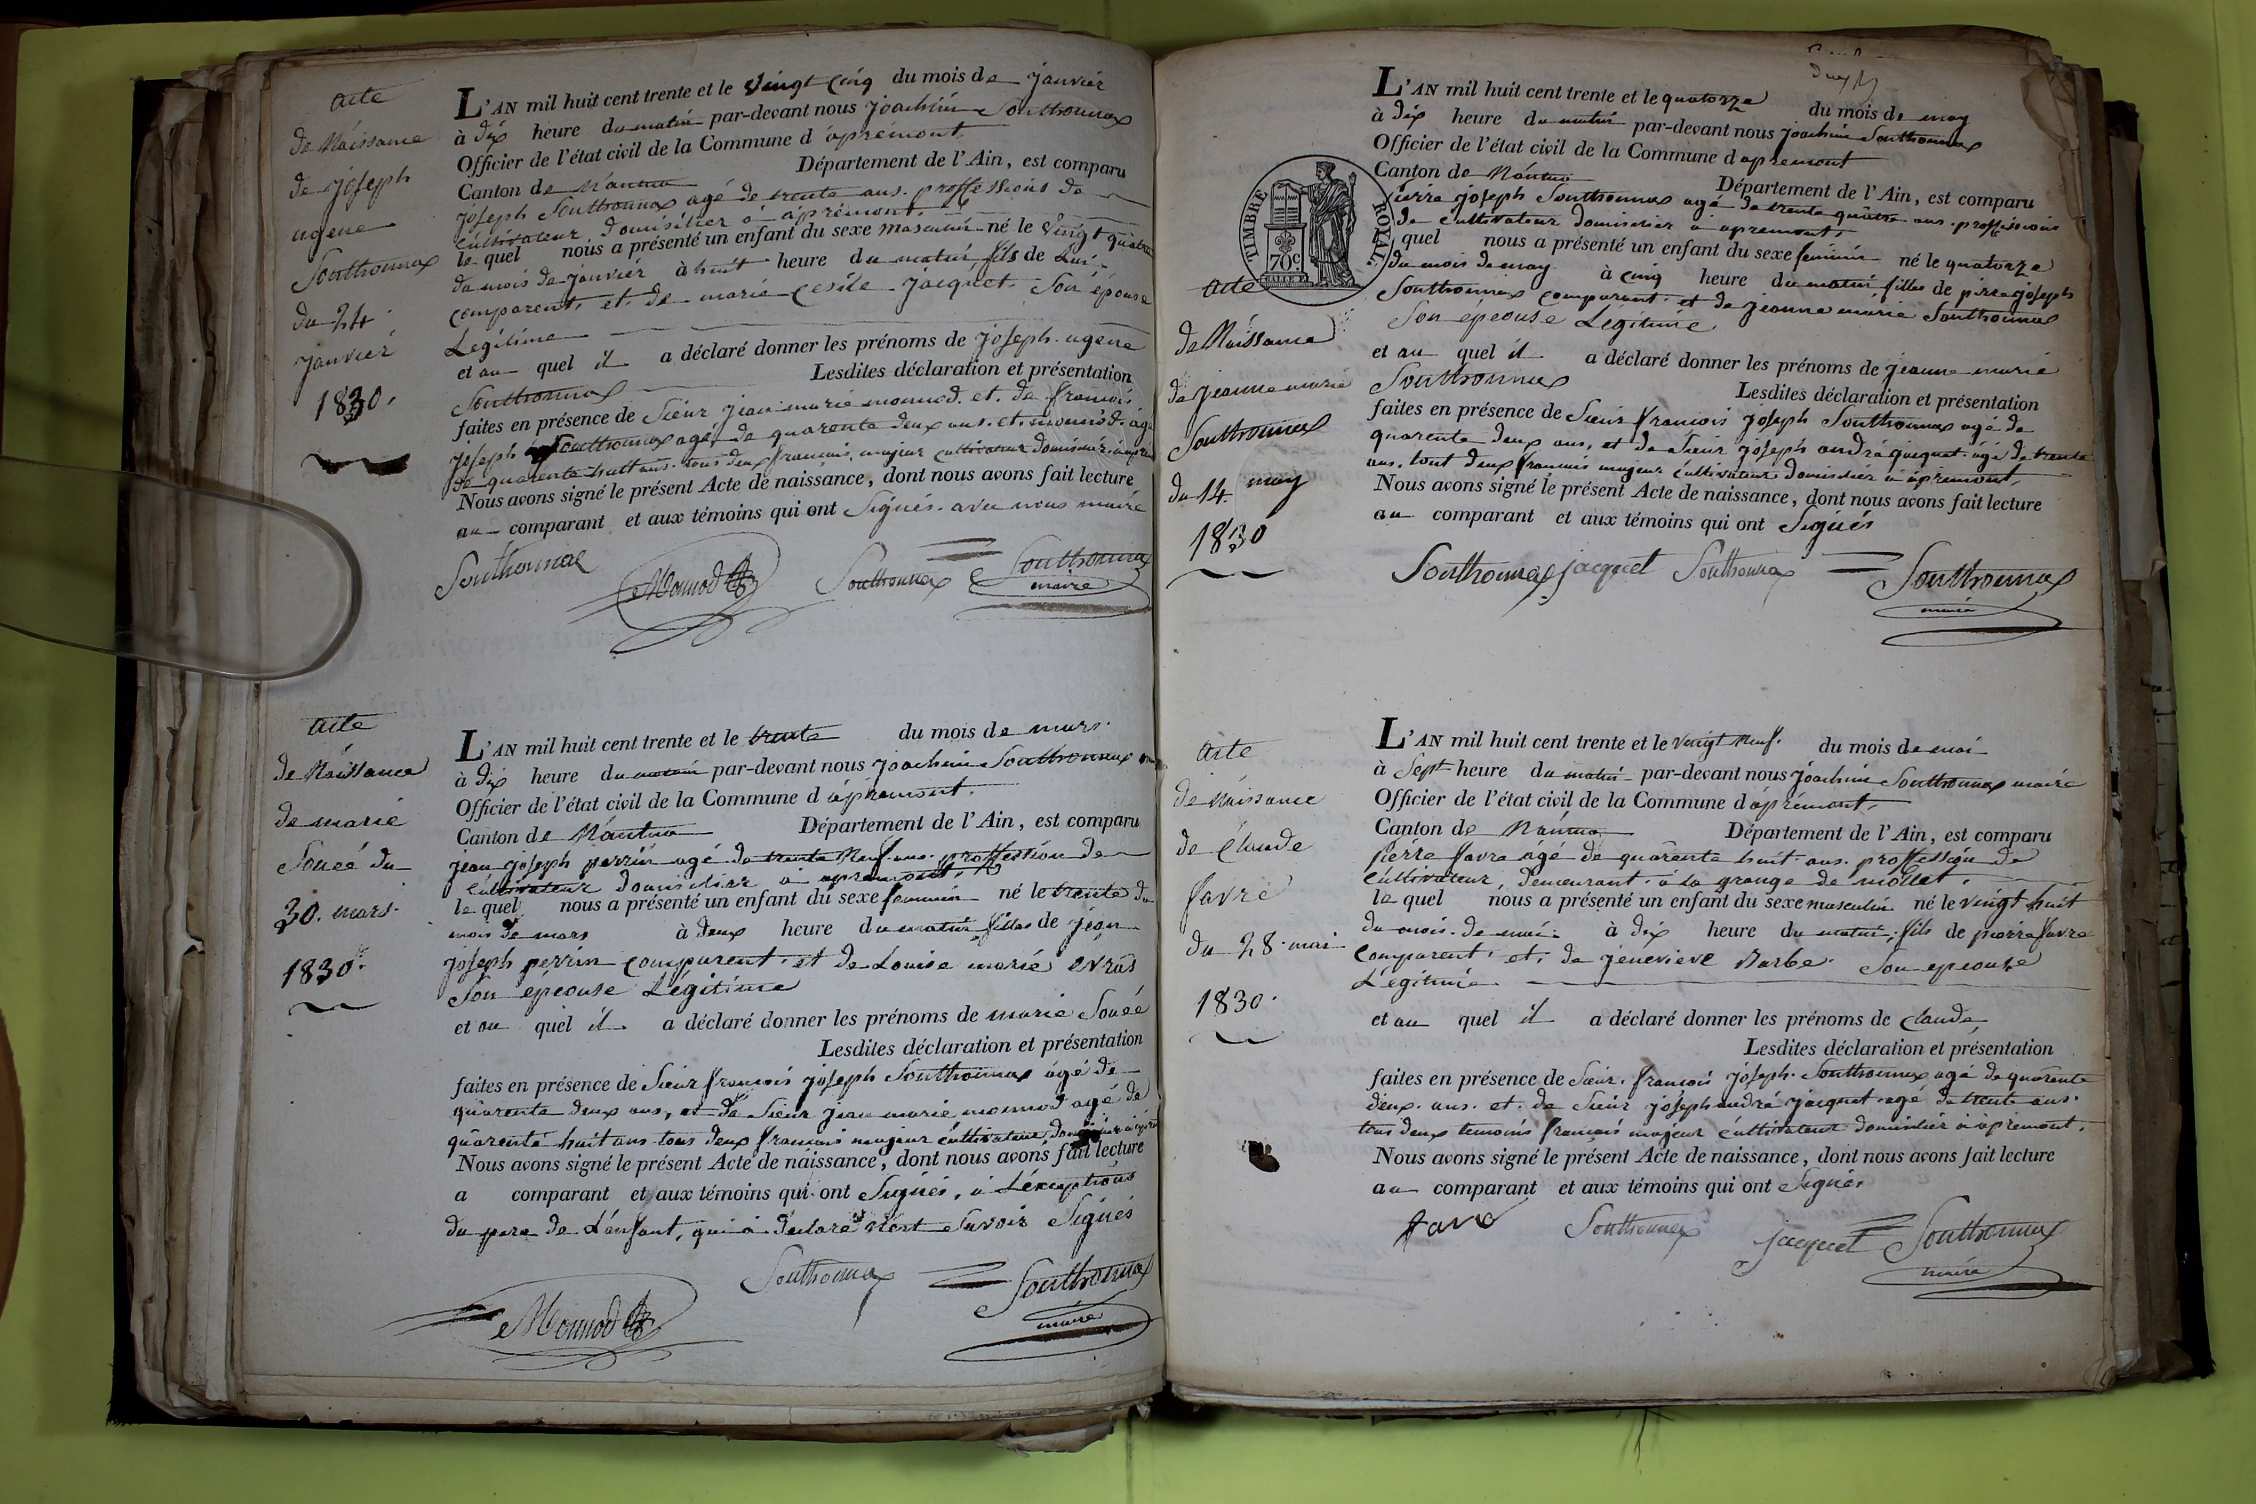 acte
de Náissance
de joseph
ugene
Southonnax
du 24
janvier
1830.
L'AN mil huit cent trente et le vingt cinq du mois de janvier
à dix heure du matin par-devant nous joachim Southonnax
Officier de l'état civil de la Commune d'apremont.
Canton de Nantua Département de l'Ain, est comparu
joseph Southonnax agé de trente ans. proffessions de
cultivateur domicilier à apremont.
le quel nous a présenté un enfant du sexe masculin né le vingt quatre
du mois de janvier à huit heure du matin fils de lui
comparent, et de marie cesile jacquet Son épouse
Légitime
et au quel il a déclaré donner les prénoms de joseph ugene
Southonnax Lesdites déclaration et présentation
faites en présence de Sieur jean marie monnod. et. de francois
joseph Southonnax agé de quarente deux ans. et. monnod. agé
de quarente huit ans. tous deux francais, majeur cultivateur domicilier
Nous avons signé le présent Acte de naissance, dont nous avons fait lecture
au comparant et aux témoins qui ont Signés. avec nous maire
Southonnax Monnod Southonnax Southonnax
maire
acte
de Náissance
de marie
Souéé du
30. mars.
1830.
L'AN mil huit cent trente et le trente du mois de mars.
à dix heure du matin par-devant nous joachim Southonnax
Officier de l'état civil de la Commune d'apremont.
Canton de Nantua Département de l'Ain, est comparu
jean joseph perrin agé de trente Neuf ans. proffestion de
cultivateur domicilier à apremont.
le quel nous a présenté un enfant du sexe feminin né le trente du
mois de mars à deux heure du matin filles de jean
joseph perrin comparent et de Louise marie evras
Son epeouse Légitime
et au quel il a déclaré donner les prénoms de marie Souéé
Lesdites déclaration et présentation
faites en présence de Sieur francois joseph Southonnax agé de
quarente deux ans, et de Sieur jean marie monnod agé de
quarente huit ans tous deux francais majeur cultivateur
Nous avons signé le présent Acte de naissance, dont nous avons fait lecture
a comparant et aux témoins qui ont Signés, à L'exceptions
du pere de L'enfant, qui à declaré savoir Signés
Southonnax Southonnax
Monnod maire
TIMBRE ROYAL
70 c.
acte
de Náissance
de jeanne marie
Southonnax
du 14 may
1830
L'AN mil huit cent trente et le quatorze du mois de may
à dix heure du matin par-devant nous joachim Southonnax
Officier de l'état civil de la Commune d'apremont
Canton de Nantua Département de l'Ain, est comparu
pierre joseph Southonnax agé de trente quatre ans. proffessions
de cultivateur domicilier à apremont.
le quel nous a présenté un enfant du sexe feminin né le quatorze
du mois de may à cinq heure du matin filles de pierre joseph
Southonnax comparent. et de jeanne marie Southonnax
Son épeouse Légitime
et au quel il a déclaré donner les prénoms de jeanne marie
Southonnax Lesdites déclaration et présentation
faites en présence de Sieur francois joseph Southonnax agé de
quarente deux ans, et de Sieur joseph andré jacquet agé de trente
ans. tout deux francais majeur cultivateur domicilier à apremont,
Nous avons signé le présent Acte de naissance, dont nous avons fait lecture
au comparant et aux témoins qui ont Signés
Southonnax jacquet Southonnax Southonnax
maire
acte
de Náissance
de Claude
favre
du 28. mai
1830.
L'AN mil huit cent trente et le vingt Neuf. du mois de mai
à Sept heure du matin par-devant nous joachim Southonnax maire
Officier de l'état civil de la Commune d'apremont,
Canton de Nantua Département de l'Ain, est comparu
pierre favre agé de quarente huit ans. proffession de
cultivateur, demeurant. à la grange de mollet.
le quel nous a présenté un enfant du sexe masculin né le vingt huit
du mois de mai. à dix heure du matin, fils de pierre favre
comparent. et. de jenevieve Barbe. Son epeouse
Légitime.
et au quel il a déclaré donner les prénoms de claude
Lesdites déclaration et présentation
faites en présence de Sieur. francois joseph. Southonnax agé de quarente
deux. ans. et. de Sieur joseph andré jacquet agé de trente ans.
tous deux temoins francais majeur cultivateur domicilier à apremont.
Nous avons signé le présent Acte de naissance, dont nous avons fait lecture
au comparant et aux témoins qui ont Signés
favre Southonnax jacquet Southonnax
maire